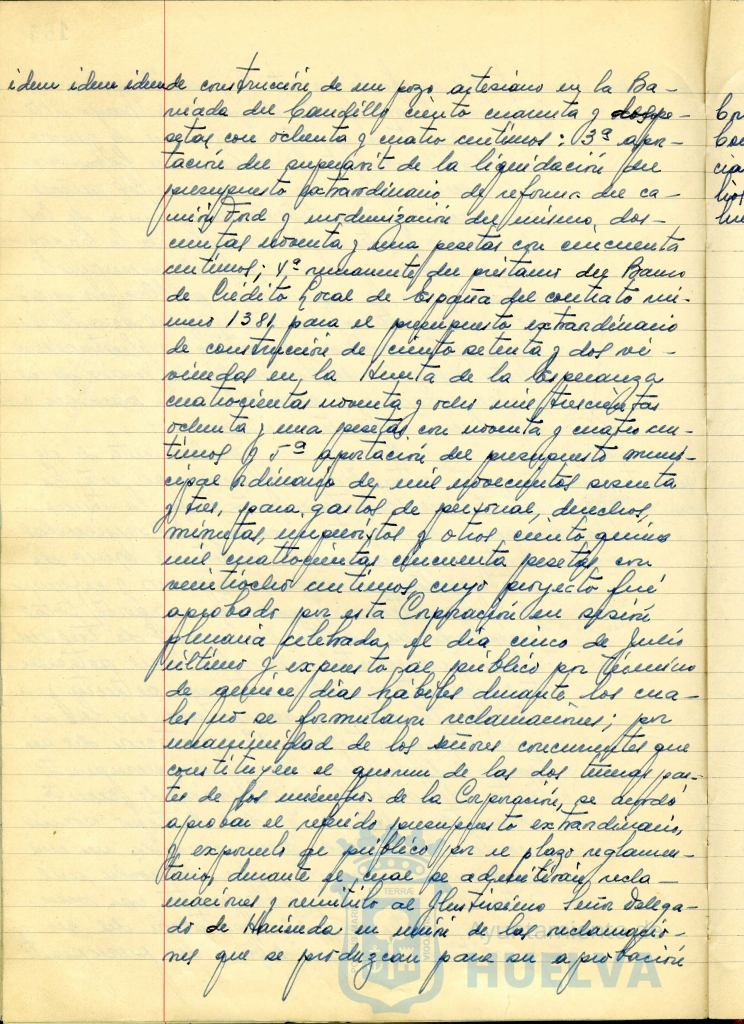 idem idem idem de construcción de un pozo artesiano en la Ba-
rriada del Caudillo ciento cuarenta y dos pe-
setas con ochenta y cuatro centimos: 3ª apor-
tación del superavit de la liquidación del
presupuesto extraordinario de reforma del ca-
mión Ford y modernización del mismo, dos-
cientas noventa y una pesetas con cincuenta
centimos; 4ª remanente del préstamo del Banco
de Crédito Local de España del contrato nú-
mero 1381, para el presupuesto extraordinario
de construcción de ciento setenta y dos vi-
viendas en la Huerta de la Esperanza
cuatrocientas noventa y ocho mil trescientas
ochenta y una pesetas con noventa y cuatro cen-
timos y 5ª aportación del presupuesto muni-
cipal ordinario de mil novecientos sesenta
y tres, para gastos de personal, derechos,
minutas, imprevistos y otros, ciento quince
mil cuatrocientas cincuenta pesetas, con
veintiocho centimos, cuyo proyecto fué
aprobado por esta Corporación en sesión
plenaria celebrada el día cinco de Julio
último y expuesto al público por término
de quince días hábiles durante los cua-
les no se formularon reclamaciones; por
unanimidad de los señores concurrentes que
constituyen el quorum de las dos terceras par-
tes de los miembros de la Corporación, se acordó
aprobar el referido presupuesto extraordinario,
y exponerlo al público por el plazo reglamen-
tario, durante el cual se admitirán recla-
maciones y remitirlo al Ilustrísimo Señor Delega-
do de Hacienda en unión de las reclamacio-
nes que se produzcan para su aprobación
HUELVA